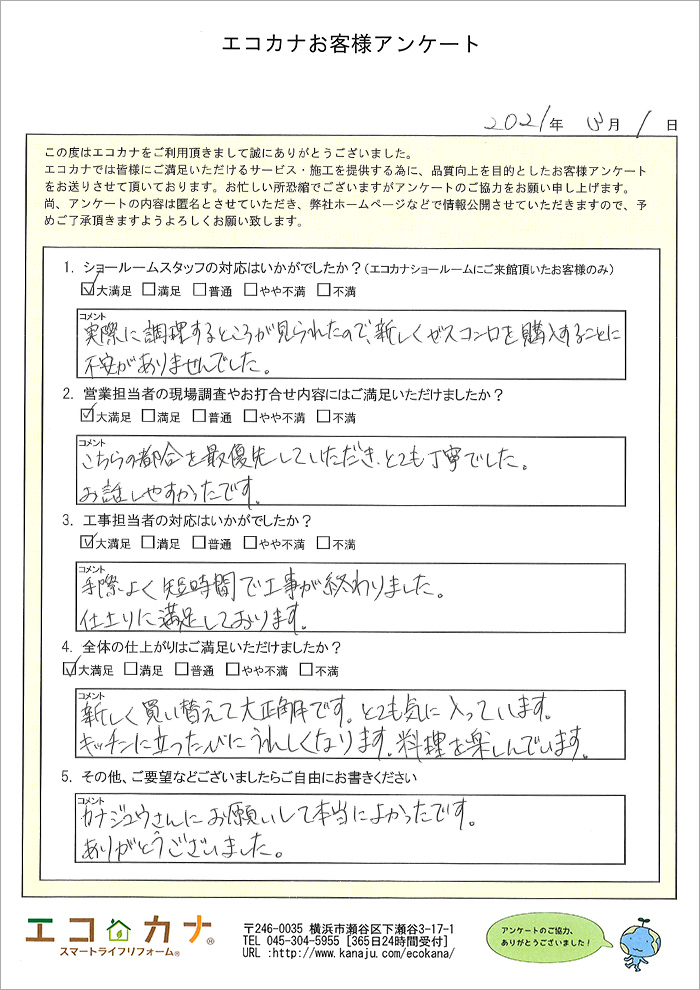 エコカナお客様アンケート
2021年 3月 1日
この度はエコカナをご利用頂きまして誠にありがとうございました。
エコカナでは皆様にご満足いただけるサービス・施工を提供する為に、品質向上を目的としたお客様アンケート
をお送りさせて頂いております。お忙しい所恐縮でございますがアンケートのご協力をお願い申し上げます。
尚、アンケートの内容は匿名とさせていただき、弊社ホームページなどで情報公開させていただきますので、予
めご了承頂きますようよろしくお願い致します。
1. ショールームスタッフの対応はいかがでしたか？(エコカナショールームにご来館頂いたお客様のみ)
☑大満足 □満足 □普通 □やや不満 □不満
コメント
実際に調理するところが見られたので、新しくガスコンロを購入することに
不安がありませんでした。
2. 営業担当者の現場調査やお打合せ内容にはご満足いただけましたか？
☑大満足 □満足 □普通 □やや不満 □不満
コメント
こちらの都合を最優先していただき、とても丁寧でした。
お話しやすかったです。
3. 工事担当者の対応はいかがでしたか？
☑大満足 □満足 □普通 □やや不満 □不満
コメント
手際よく短時間で工事が終わりました。
仕上りに満足しております。
4. 全体の仕上がりはご満足いただけましたか？
☑大満足 □満足 □普通 □やや不満 □不満
コメント
新しく買い替えて大正解です。とても気に入っています。
キッチンに立つたびにうれしくなります。料理を楽しんでいます。
5. その他、ご要望などございましたらご自由にお書きください
コメント
カナジュウさんにお願いして本当によかったです。
ありがとうございました。
エコカナ®
スマートライフリフォーム®
〒246-0035 横浜市瀬谷区下瀬谷3-17-1
TEL 045-304-5955 [365日24時間受付]
URL :http://www.kanaju.com/ecokana/
アンケートのご協力、
ありがとうございました！